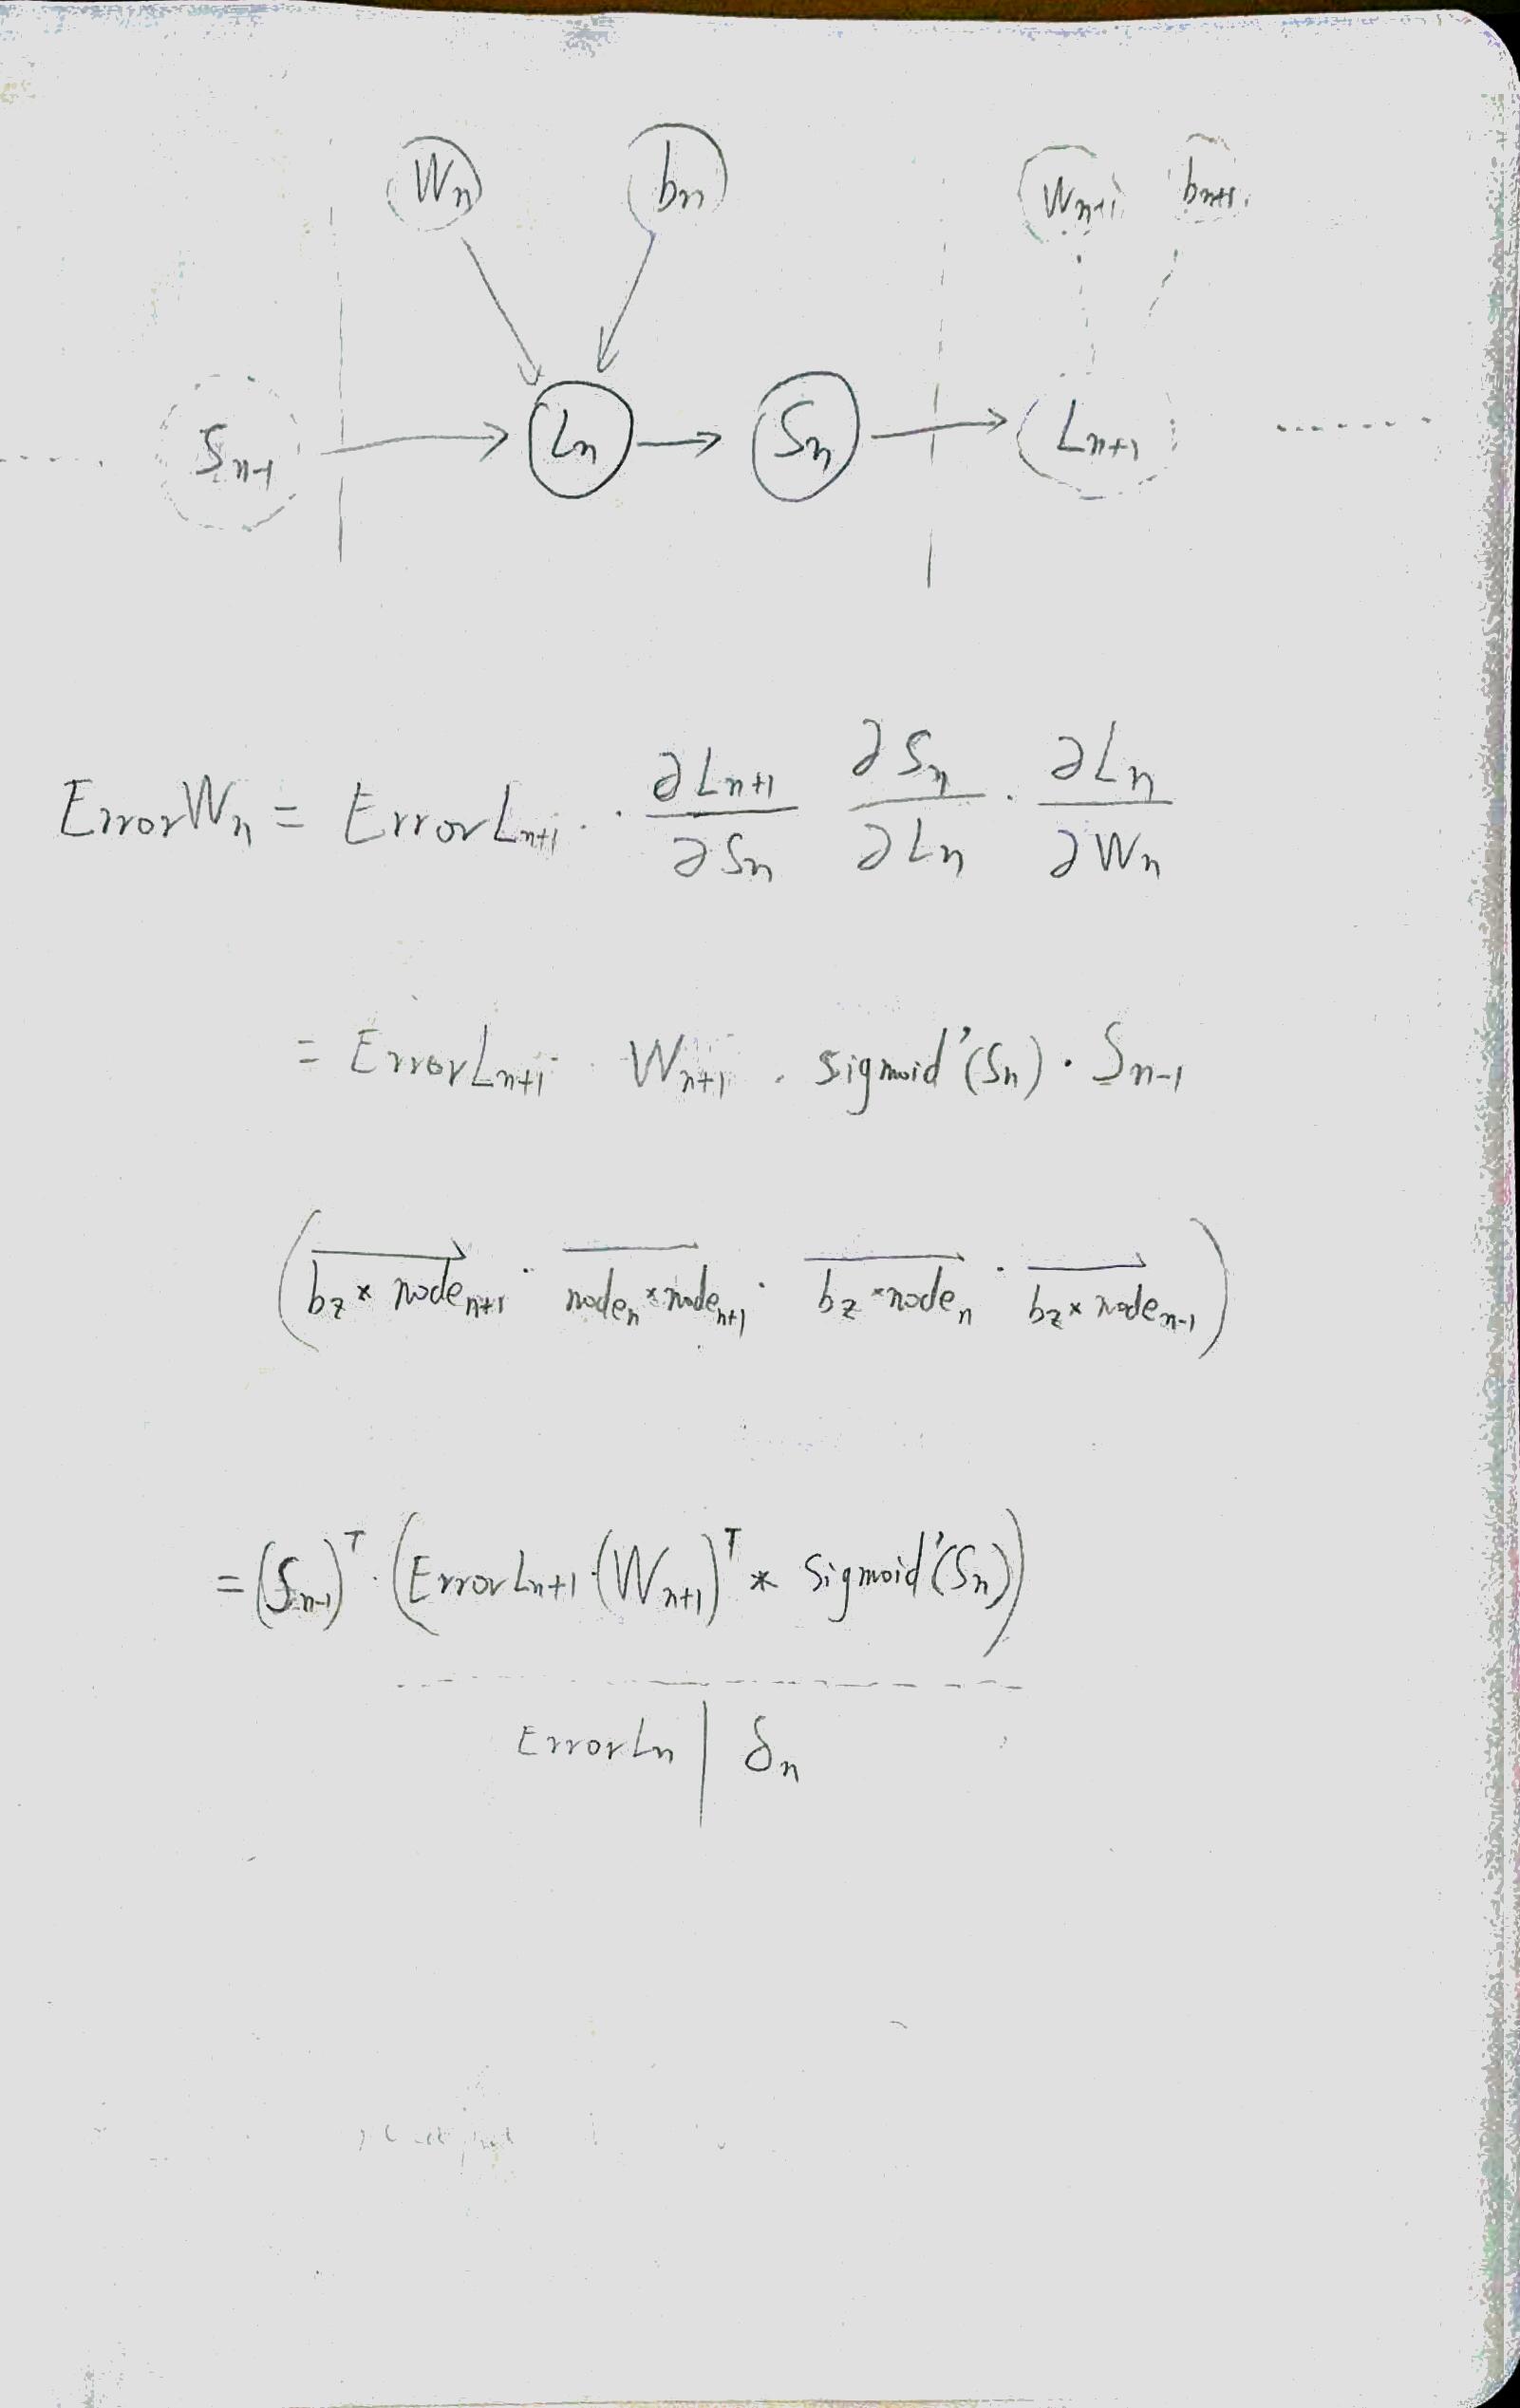 Wₙ bₙ Wₙ₊₁ bₙ₊₁
Sₙ₋₁ → Lₙ → Sₙ → Lₙ₊₁
ErrorWₙ = ErrorLₙ₊₁ · ∂Lₙ₊₁/∂Sₙ ∂Sₙ/∂Lₙ · ∂Lₙ/∂Wₙ
= ErrorLₙ₊₁ · Wₙ₊₁ · sigmoid'(Sₙ) · Sₙ₋₁
(bz × nodeₙ₊₁ · nodeₙ × nodeₙ₊₁ · bz × nodeₙ · bz × nodeₙ₋₁)
= (Sₙ₋₁)ᵀ · (ErrorLₙ₊₁ · (Wₙ₊₁)ᵀ * sigmoid'(Sₙ))
ErrorLₙ | δₙ